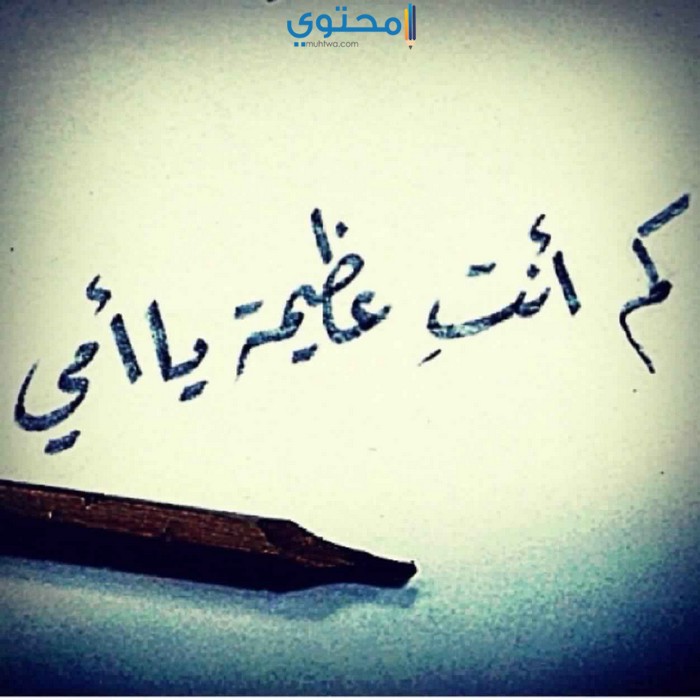 محتوى
muhtwa.com
كم أنتِ عظيمة يا أمي